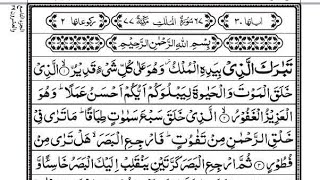 اٰیاتها ٣٠ ٦٧ سُوْرَةُ الْمُلْكِ مَكِّيَّةٌ ٧٧ رکوعاتها ٢
بِسْمِ اللّٰهِ الرَّحْمٰنِ الرَّحِيْمِ
تَبٰرَكَ الَّذِيْ بِيَدِهِ الْمُلْكُ وَهُوَ عَلٰى كُلِّ شَيْءٍ قَدِيْرُ ۝ الَّذِيْ
خَلَقَ الْمَوْتَ وَالْحَيٰوةَ لِيَبْلُوَكُمْ اَيُّكُمْ اَحْسَنُ عَمَلًا ؕ وَهُوَ
الْعَزِيْزُ الْغَفُوْرُ ۝ الَّذِيْ خَلَقَ سَبْعَ سَمٰوٰتٍ طِبَاقًا ؕ مَا تَرٰى فِيْ
خَلْقِ الرَّحْمٰنِ مِنْ تَفٰوُتٍ ؕ فَارْجِعِ الْبَصَرَ ۙ هَلْ تَرٰى مِنْ
فُطُوْرٍ ۝ ثُمَّ ارْجِعِ الْبَصَرَ كَرَّتَيْنِ يَنْقَلِبْ اِلَيْكَ الْبَصَرُ خَاسِئًا وَّ